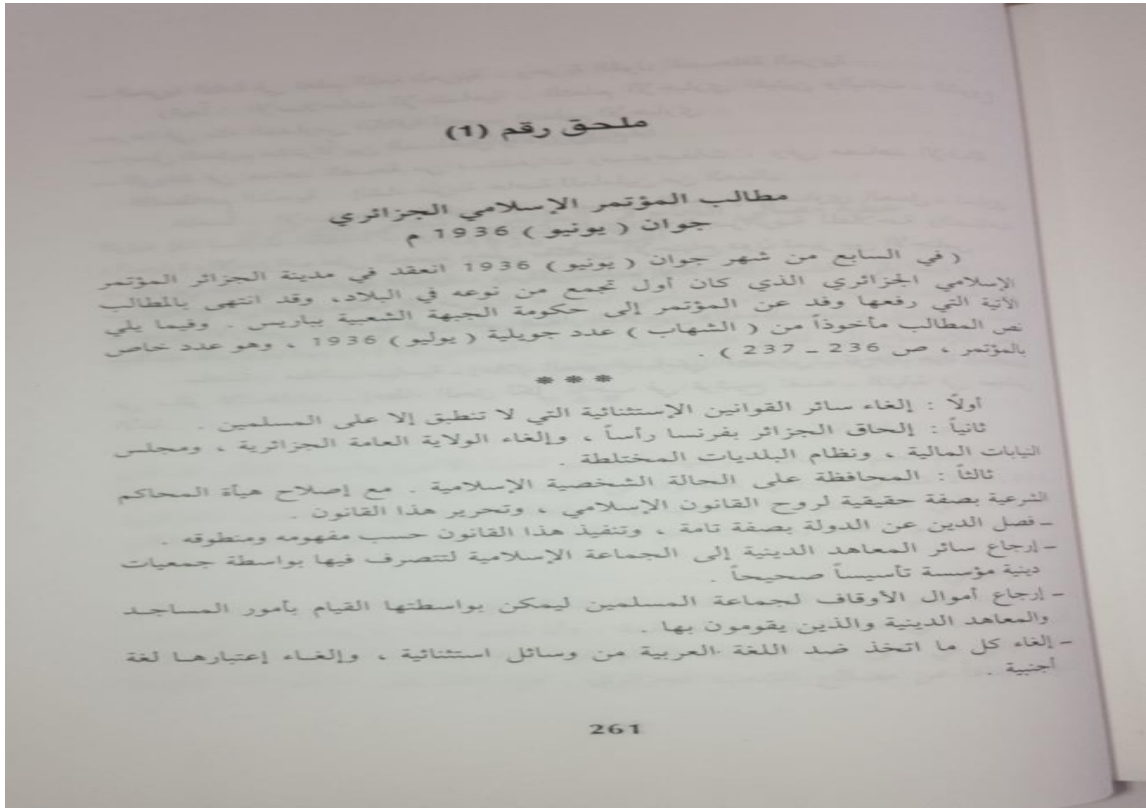 ملحق رقم (1)
مطالب المؤتمر الإسلامي الجزائري
جوان ( يونيو ) 1936 م
( في السابع من شهر جوان ( يونيو ) 1936 انعقد في مدينة الجزائر المؤتمر
الإسلامي الجزائري الذي كان أول تجمع من نوعه في البلاد، وقد انتهى بالمطالب
الآتية التي رفعها وفد عن المؤتمر إلى حكومة الجبهة الشعبية بباريس . وفيما يلي
نص المطالب مأخوذاً من ( الشهاب ) عدد جويلية ( يوليو ) 1936 ، وهو عدد خاص
بالمؤتمر ، ص 236 – 237 ) .
* * *
أولاً : إلغاء سائر القوانين الإستثنائية التي لا تنطبق إلا على المسلمين .
ثانياً : إلحاق الجزائر بفرنسا رأساً ، وإلغاء الولاية العامة الجزائرية ، ومجلس
النيابات المالية ، ونظام البلديات المختلطة .
ثالثاً : المحافظة على الحالة الشخصية الإسلامية . مع إصلاح هيأة المحاكم
الشرعية بصفة حقيقية لروح القانون الإسلامي ، وتحرير هذا القانون .
– فصل الدين عن الدولة بصفة تامة ، وتنفيذ هذا القانون حسب مفهومه ومنطوقه .
– إرجاع سائر المعاهد الدينية إلى الجماعة الإسلامية لتتصرف فيها بواسطة جمعيات
دينية مؤسسة تأسيساً صحيحاً .
– إرجاع أموال الأوقاف لجماعة المسلمين ليمكن بواسطتها القيام بأمور المساجد
والمعاهد الدينية والذين يقومون بها .
– إلغاء كل ما اتخذ ضد اللغة العربية من وسائل استثنائية ، وإلغاء إعتبارها لغة
أجنبية .
261